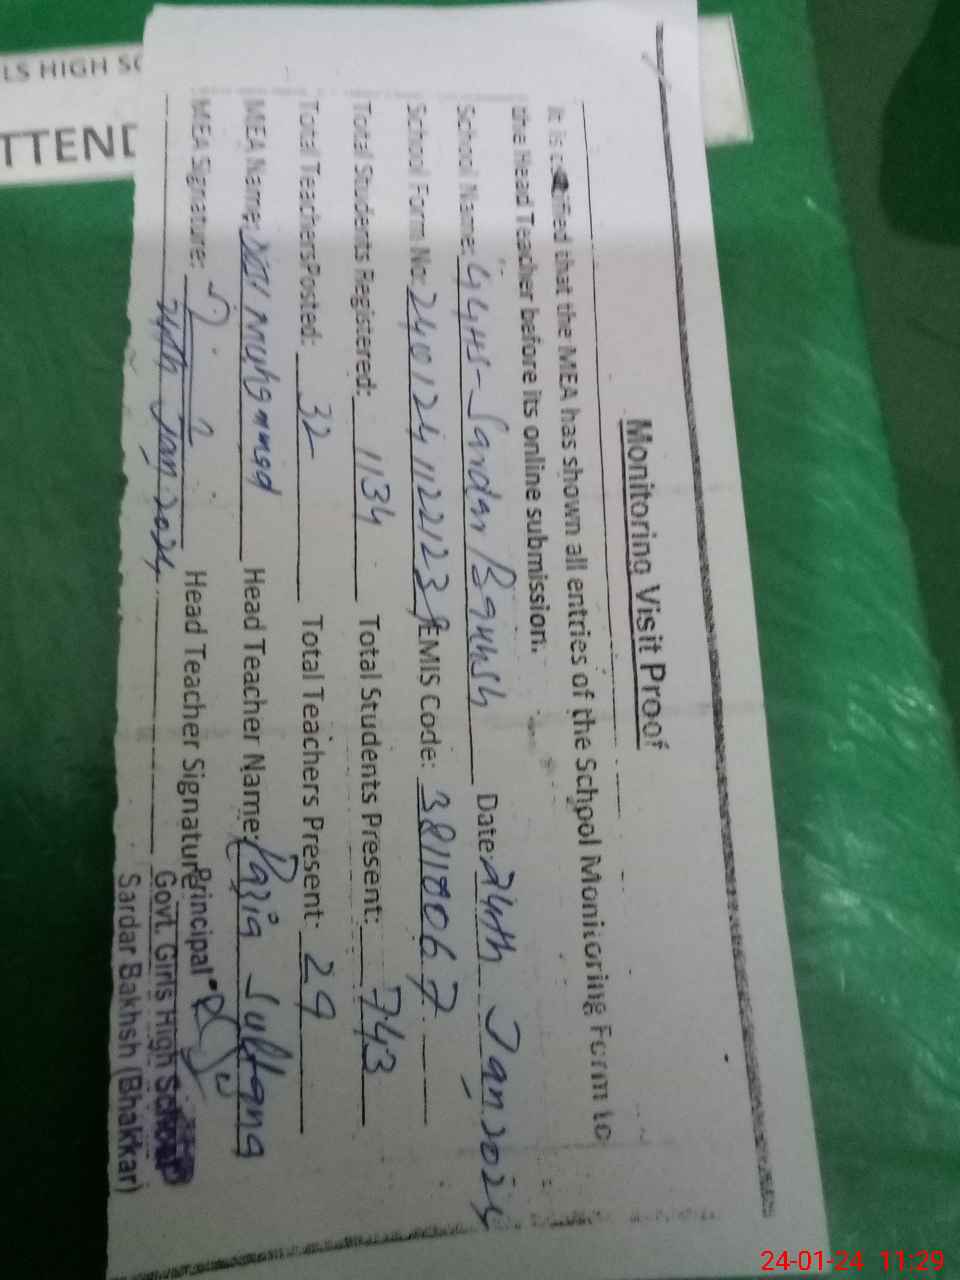 LS HIGH SC
TTEND
Monitoring Visit Proof
It is certified that the MEA has shown all entries of the School Monitoring Form to
the Head Teacher before its online submission.
School Name: GGHS-Sardar Bakhsh Date: 24th Jan 2024
School Form No: EMIS Code: 38110067
Total Students Registered: 1134 Total Students Present: 743
Total TeachersPosted: 32 Total Teachers Present: 29
MEA Name: Muhammad Head Teacher Name: Razia Sultana
MEA Signature: Head Teacher Signature
24th Jan 2024
Principal
Govt. Girls High School
Sardar Bakhsh (Bhakkar)
24-01-24 11:29